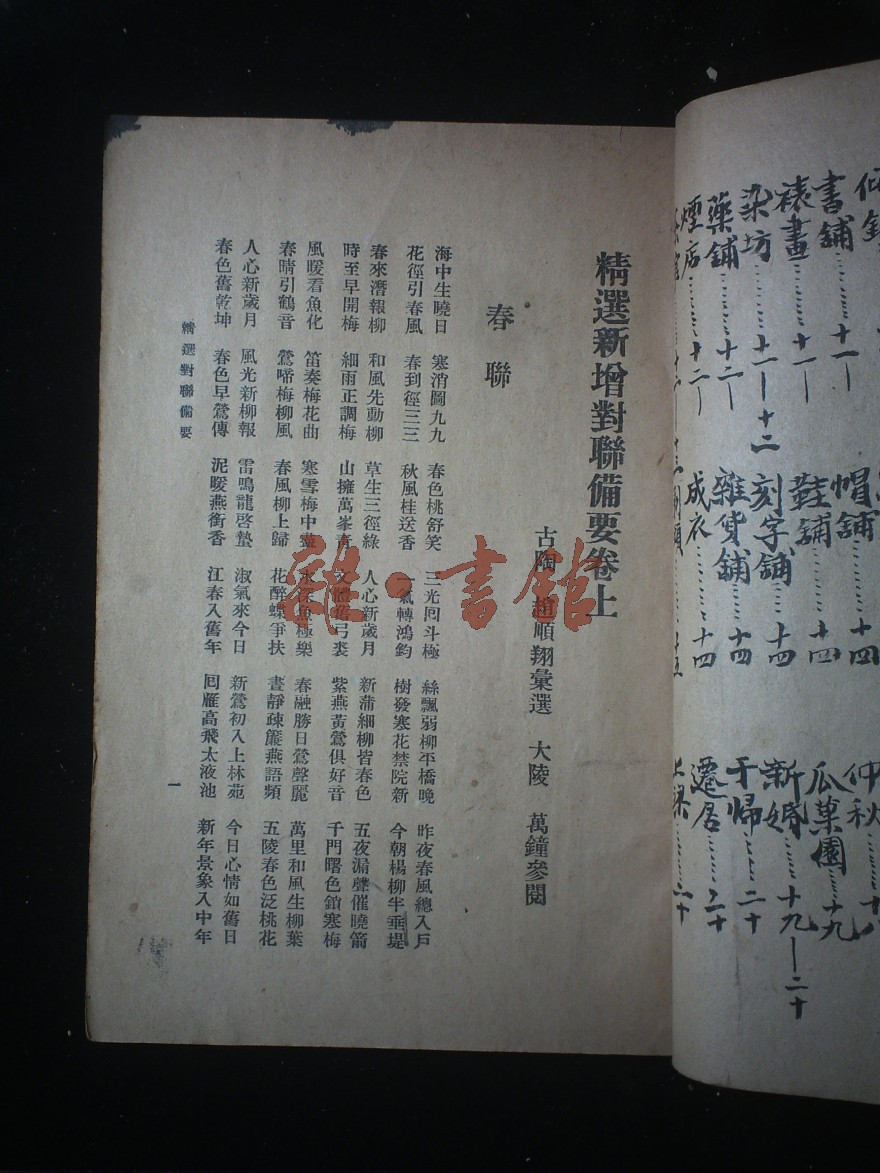 書鋪……十一 帽鋪……十四 仲秋……十八
裱畫……十一 鞋鋪……十四 瓜菓園……十九
染坊……十一—十二 刻字鋪……十四 新婚……十九—二十
藥鋪……十二 雜貨鋪……十四 于歸……二十
煙店……十二 成衣……十四 遷居……二十
上梁……二十
精選新增對聯備要卷上
古陶 趙順翔彙選 大陵 萬鐘參閱
春聯
海中生曉日 寒消圖九九 春色桃舒笑 三光囘斗極 絲飄弱柳平橋晚 昨夜春風總入戶
花徑引春風 春到徑三三 秋風桂送香 一氣轉鴻鈞 樹發寒花禁院新 今朝楊柳半垂堤
春來潛報柳 和風先動柳 草生三徑綠 人心新歲月 新蒲細柳皆春色 五夜漏聲催曉箭
時至早開梅 細雨正調梅 山擁萬峯青 文體舊弓裘 紫燕黃鶯俱好音 千門曙色鎖寒梅
風暖看魚化 笛奏梅花曲 寒雪梅中盡 水深魚極樂 春融勝日鶯聲麗 萬里和風生柳葉
春晴引鶴音 鶯啼梅柳風 春風柳上歸 花醉蝶爭扶 晝靜疎簾燕語頻 五陵春色泛桃花
人心新歲月 風光新柳報 雷鳴龍啓蟄 淑氣來今日 新鶯初入上林苑 今日心情如舊日
春色舊乾坤 春色早鶯傳 泥暖燕銜香 江春入舊年 囘雁高飛太液池 新年景象入中年
精選對聯備要 一
雜·書館